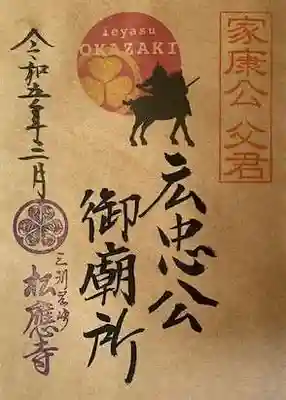 家康公 父君
ieyasu
OKAZAKI
広忠公
御廟所
令和五年三月
三州岡崎
松應寺